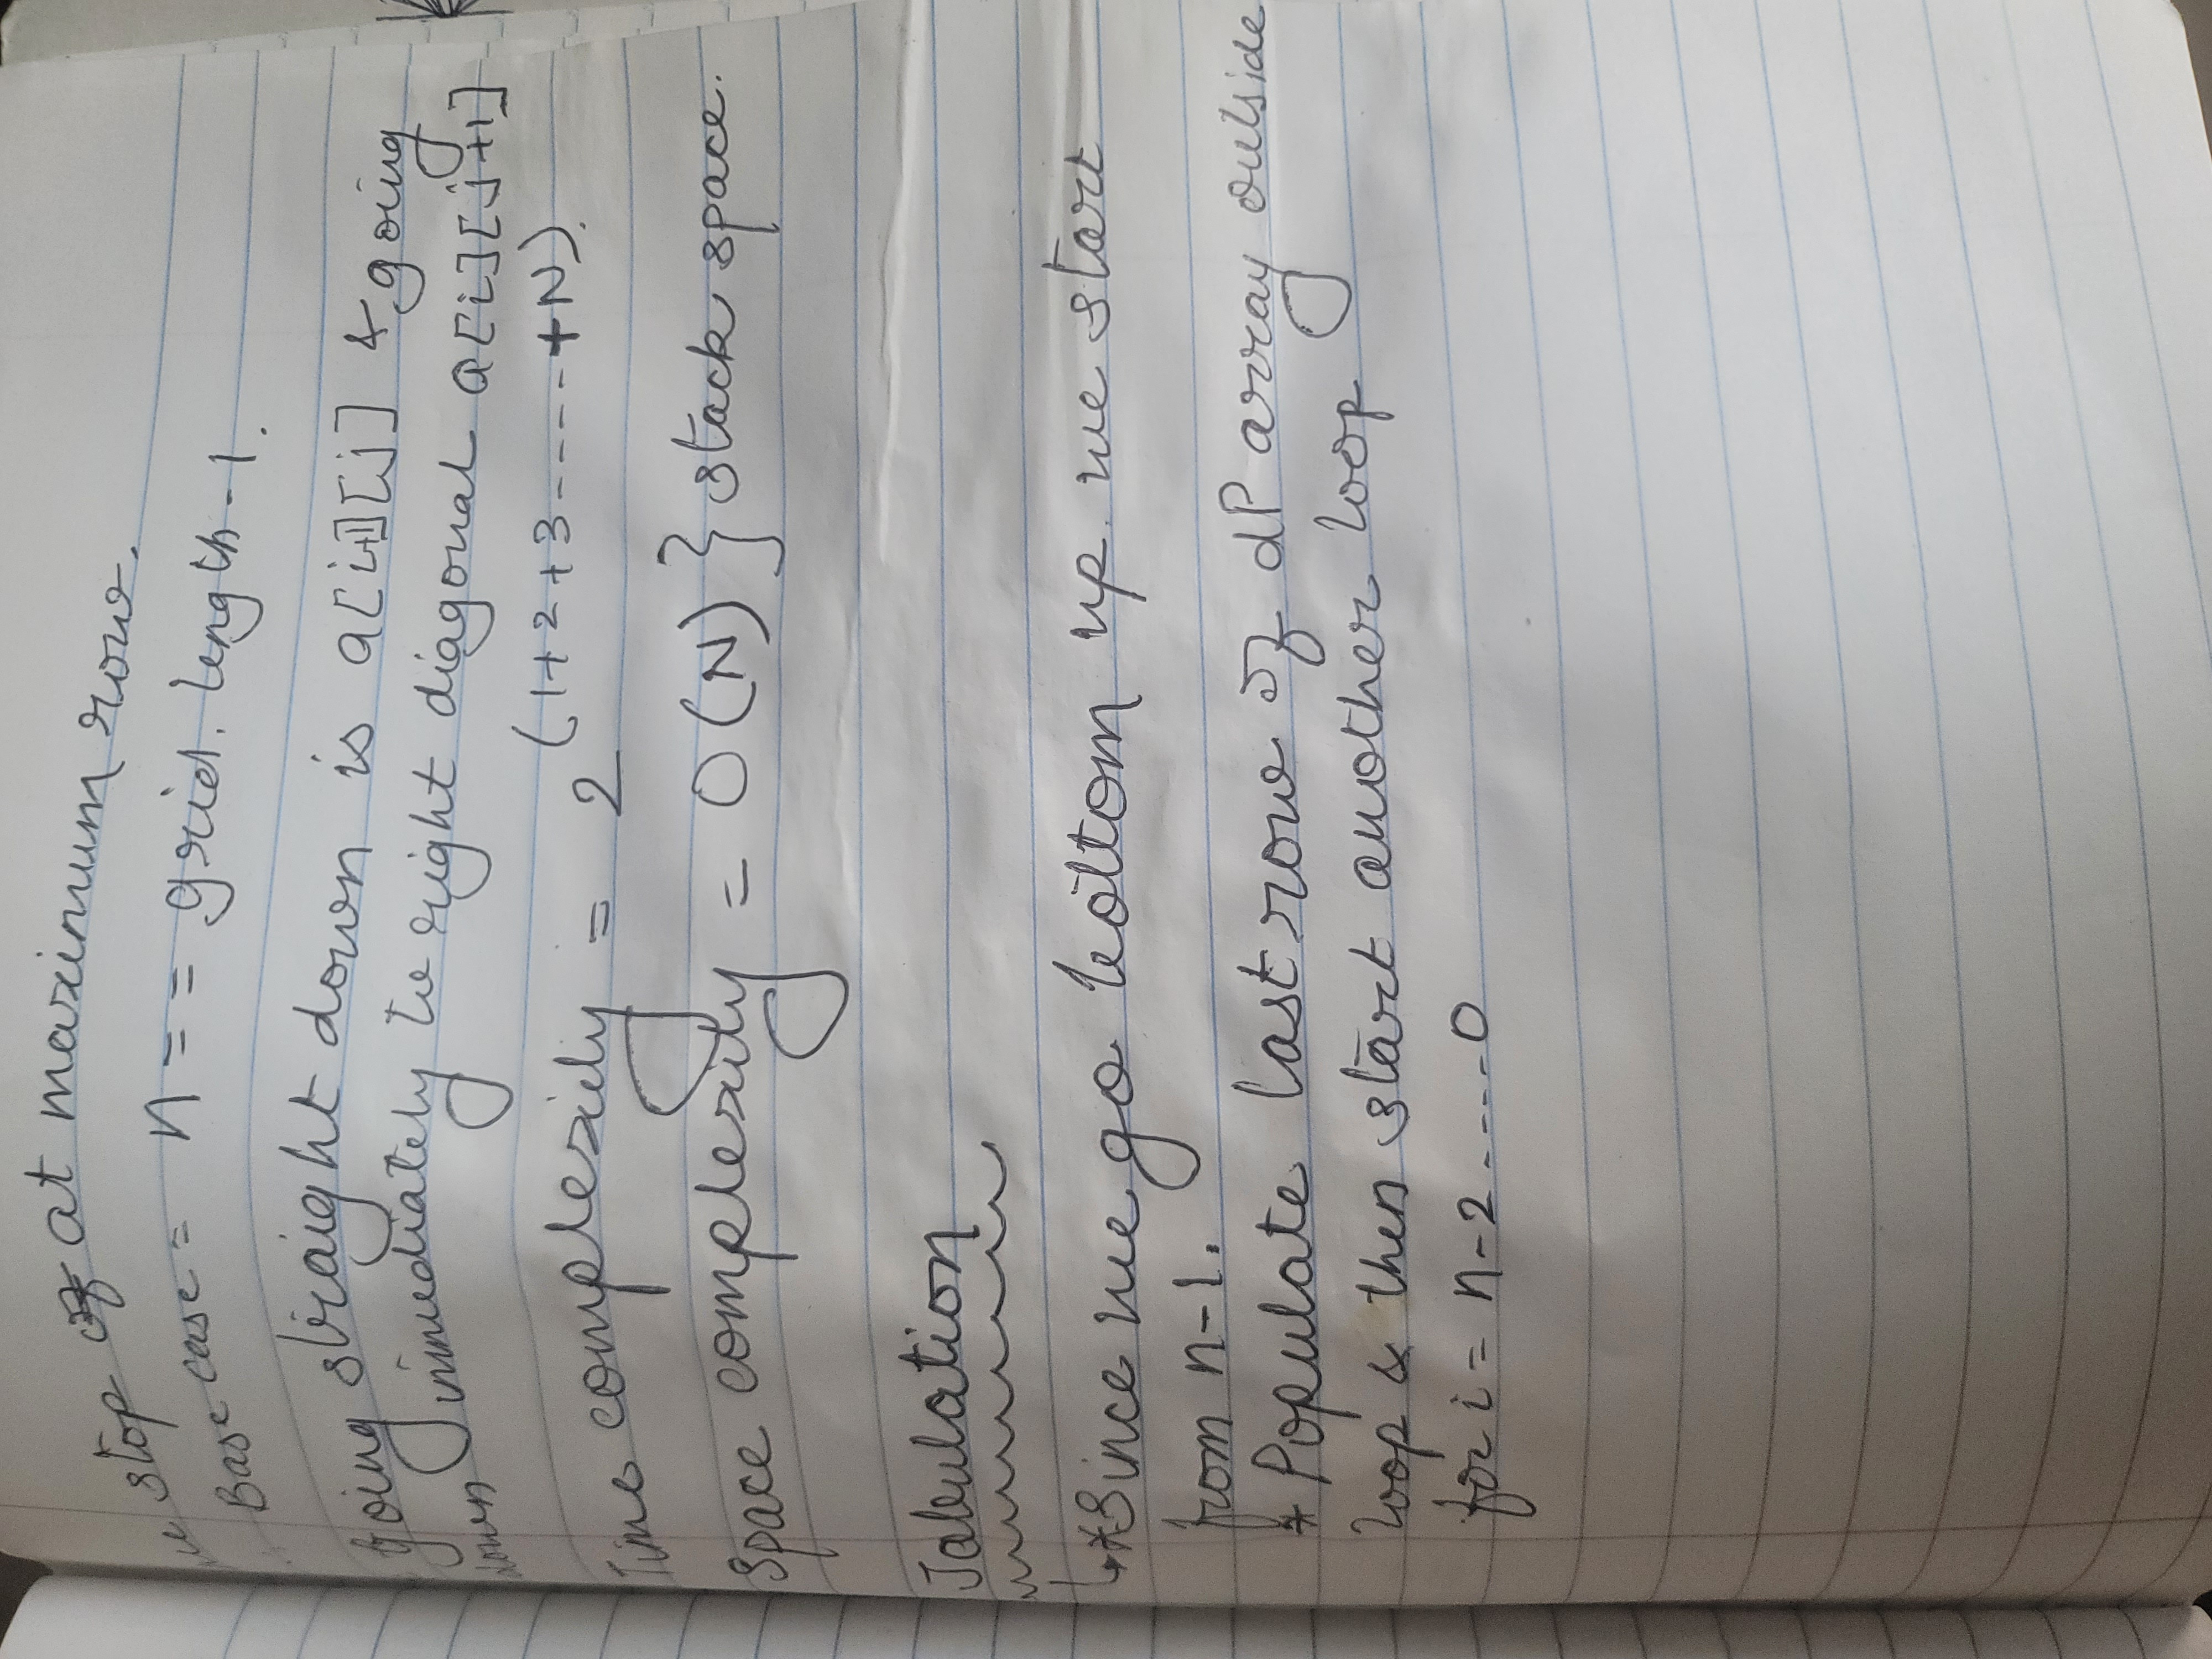 stop at maximum row.
Base case = n == grid.length-1.
Going straight down is a[i+1][j] & going
down immediately to right diagonal a[i][j+1]
Time complexity = 2^(1+2+3-----+N).
Space complexity = O(N) } stack space.
Tabulation
↳ *Since we go bottom up we start
from n-1.
* Populate last row of dP array outside
loop & then start another loop
for i = n-2 .----0